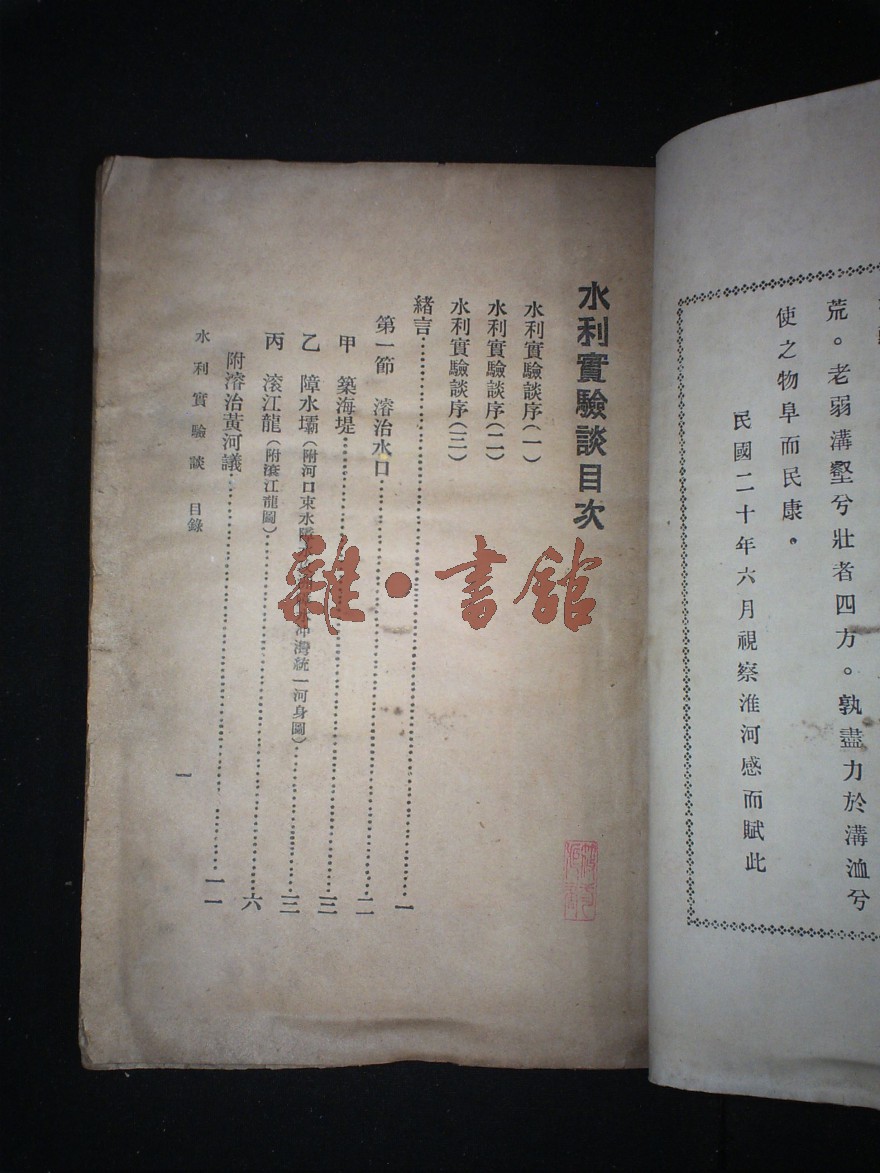 荒。老弱溝壑兮壯者四方。孰盡力於溝洫兮
使之物阜而民康。
民國二十年六月視察淮河感而賦此
水利實驗談目次
水利實驗談序(一)
水利實驗談序(二)
水利實驗談序(三)
緒言…………一
第一節　濬治水口…………二
甲　築海堤…………三
乙　障水壩(附河口束水 沖灣統一河身圖)…………三
丙　滚江龍(附滚江龍圖)…………六
附濬治黃河議…………一一
水利實驗談　目錄
一
雜·書館